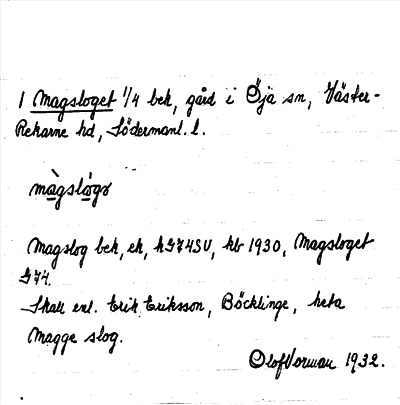 1 Magsloget 1/4 beh, gård i Öja sn, Väster-
Rekarne hd, Södermanl. l.
màgslògə
Magslog beh, ek, kG74SU, hb 1930, Magsloget
G74.
Skall enl. Erik Eriksson, Böcklinge, heta
Magge slog.
Olof Vorman 1932.